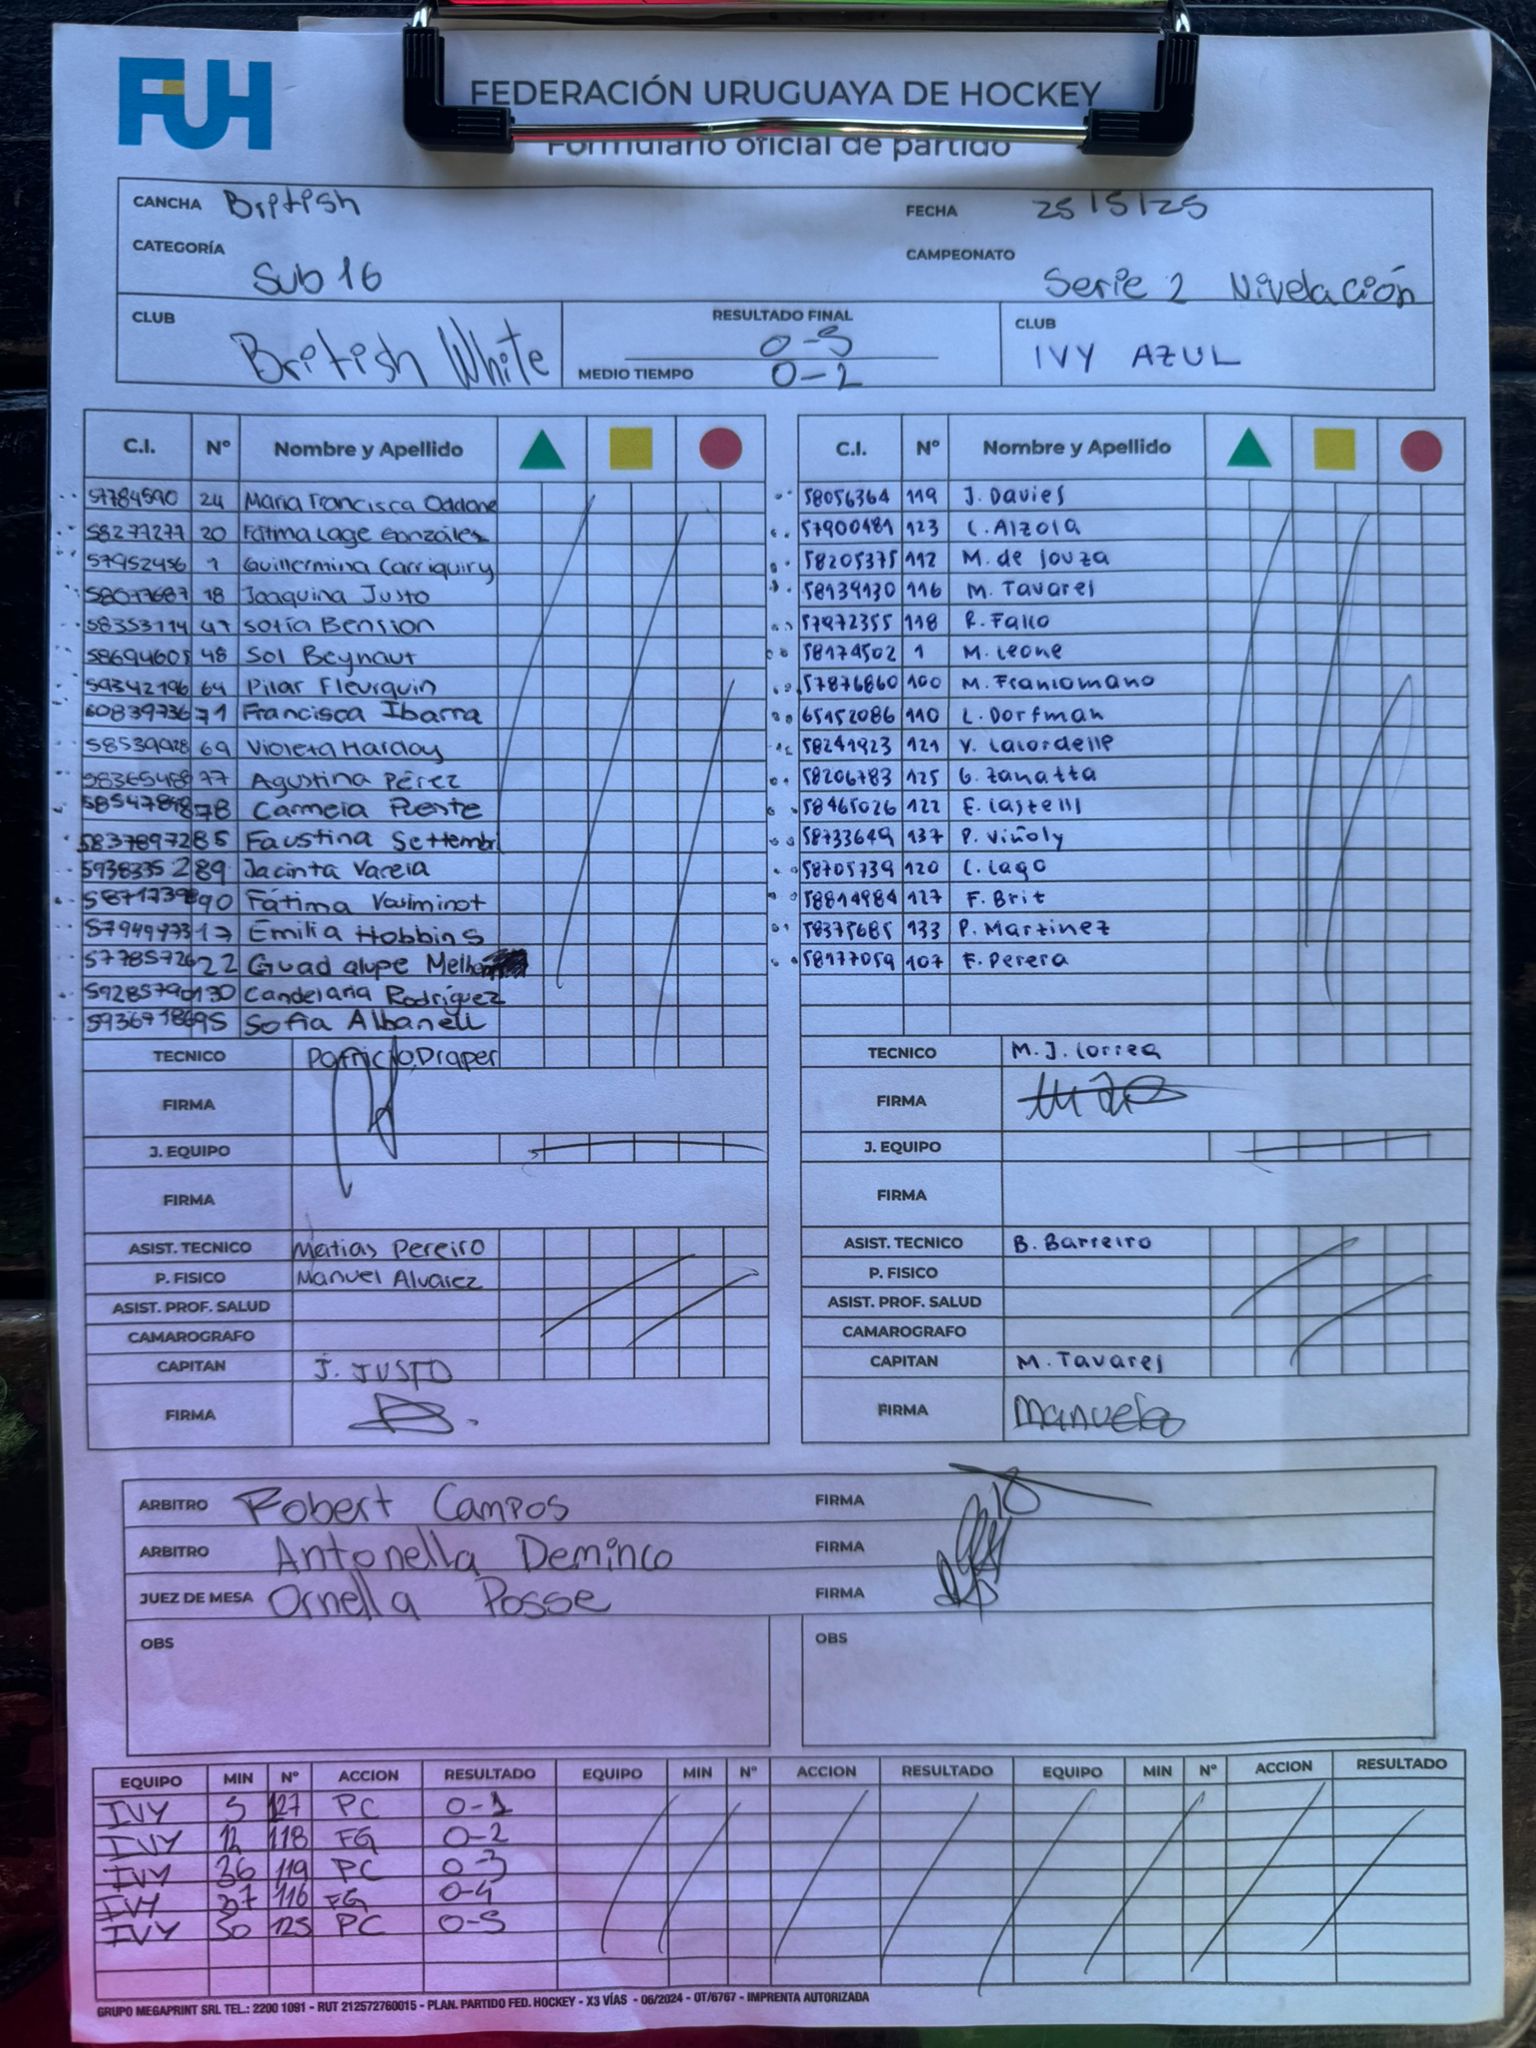 FUH
FEDERACIÓN URUGUAYA DE HOCKEY
Formulario oficial de partido
CANCHA British FECHA 25/5/25
CATEGORÍA Sub 16 CAMPEONATO Serie 2 Nivelación
CLUB British White RESULTADO FINAL 0-5 CLUB IVY AZUL
MEDIO TIEMPO 0-2
C.I. Nº Nombre y Apellido C.I. Nº Nombre y Apellido
57784590 24 Maria Francisca Oddone 58056364 119 J. Davies
58277277 20 Fátima Lage González 57900481 123 C. Alzola
57952456 1 Guillermina Carriquiry 58205375 112 M. de Souza
58077687 18 Joaquina Justo 58139130 116 M. Tavares
58353114 47 Sofía Bension 57972355 118 R. Falco
58694605 48 Sol Beynaut 58174502 1 M. Leone
59342196 64 Pilar Fleurquin 57876860 100 M. Francomano
60839736 71 Francisca Ibarra 65152086 110 L. Dorfman
58539928 69 Violeta Hardoy 58241923 121 V. Lacordelle
58365488 77 Agustina Pérez 58206783 125 G. Zanatta
78 Carmela Puente 58465026 122 E. Castells
58378972 85 Faustina Settembri 58733649 137 P. Viñoly
59383352 89 Jacinta Varela 58705739 120 C. Lago
90 Fátima 58814984 127 F. Brit
57949973 17 Emilia Hobbins 58375685 133 P. Martinez
57785726 22 Guadalupe 58177059 107 F. Perera
59285790 130 Candelaria Rodríguez
95 Sofia Albanell
TECNICO Patricio Draper TECNICO M. J. Correa
FIRMA FIRMA
J. EQUIPO J. EQUIPO
FIRMA FIRMA
ASIST. TECNICO Matias Pereiro ASIST. TECNICO B. Barreiro
P. FISICO Manuel Alvarez P. FISICO
ASIST. PROF. SALUD ASIST. PROF. SALUD
CAMAROGRAFO CAMAROGRAFO
CAPITAN J. JUSTO CAPITAN M. Tavares
FIRMA FIRMA Manuela
ARBITRO Robert Campos FIRMA
ARBITRO Antonella Deminco FIRMA
JUEZ DE MESA Ornella Posse FIRMA
OBS OBS
EQUIPO MIN Nº ACCION RESULTADO EQUIPO MIN Nº ACCION RESULTADO EQUIPO MIN Nº ACCION RESULTADO
IVY 5 127 PC 0-1
IVY 12 118 FG 0-2
IVY 36 119 PC 0-3
IVY 37 116 FG 0-4
IVY 50 125 PC 0-5
GRUPO MEGAPRINT SRL TEL.: 2200 1091 - RUT 212572760015 - PLAN. PARTIDO FED. HOCKEY - X3 VÍAS - 06/2024 - OT/6767 - IMPRENTA AUTORIZADA